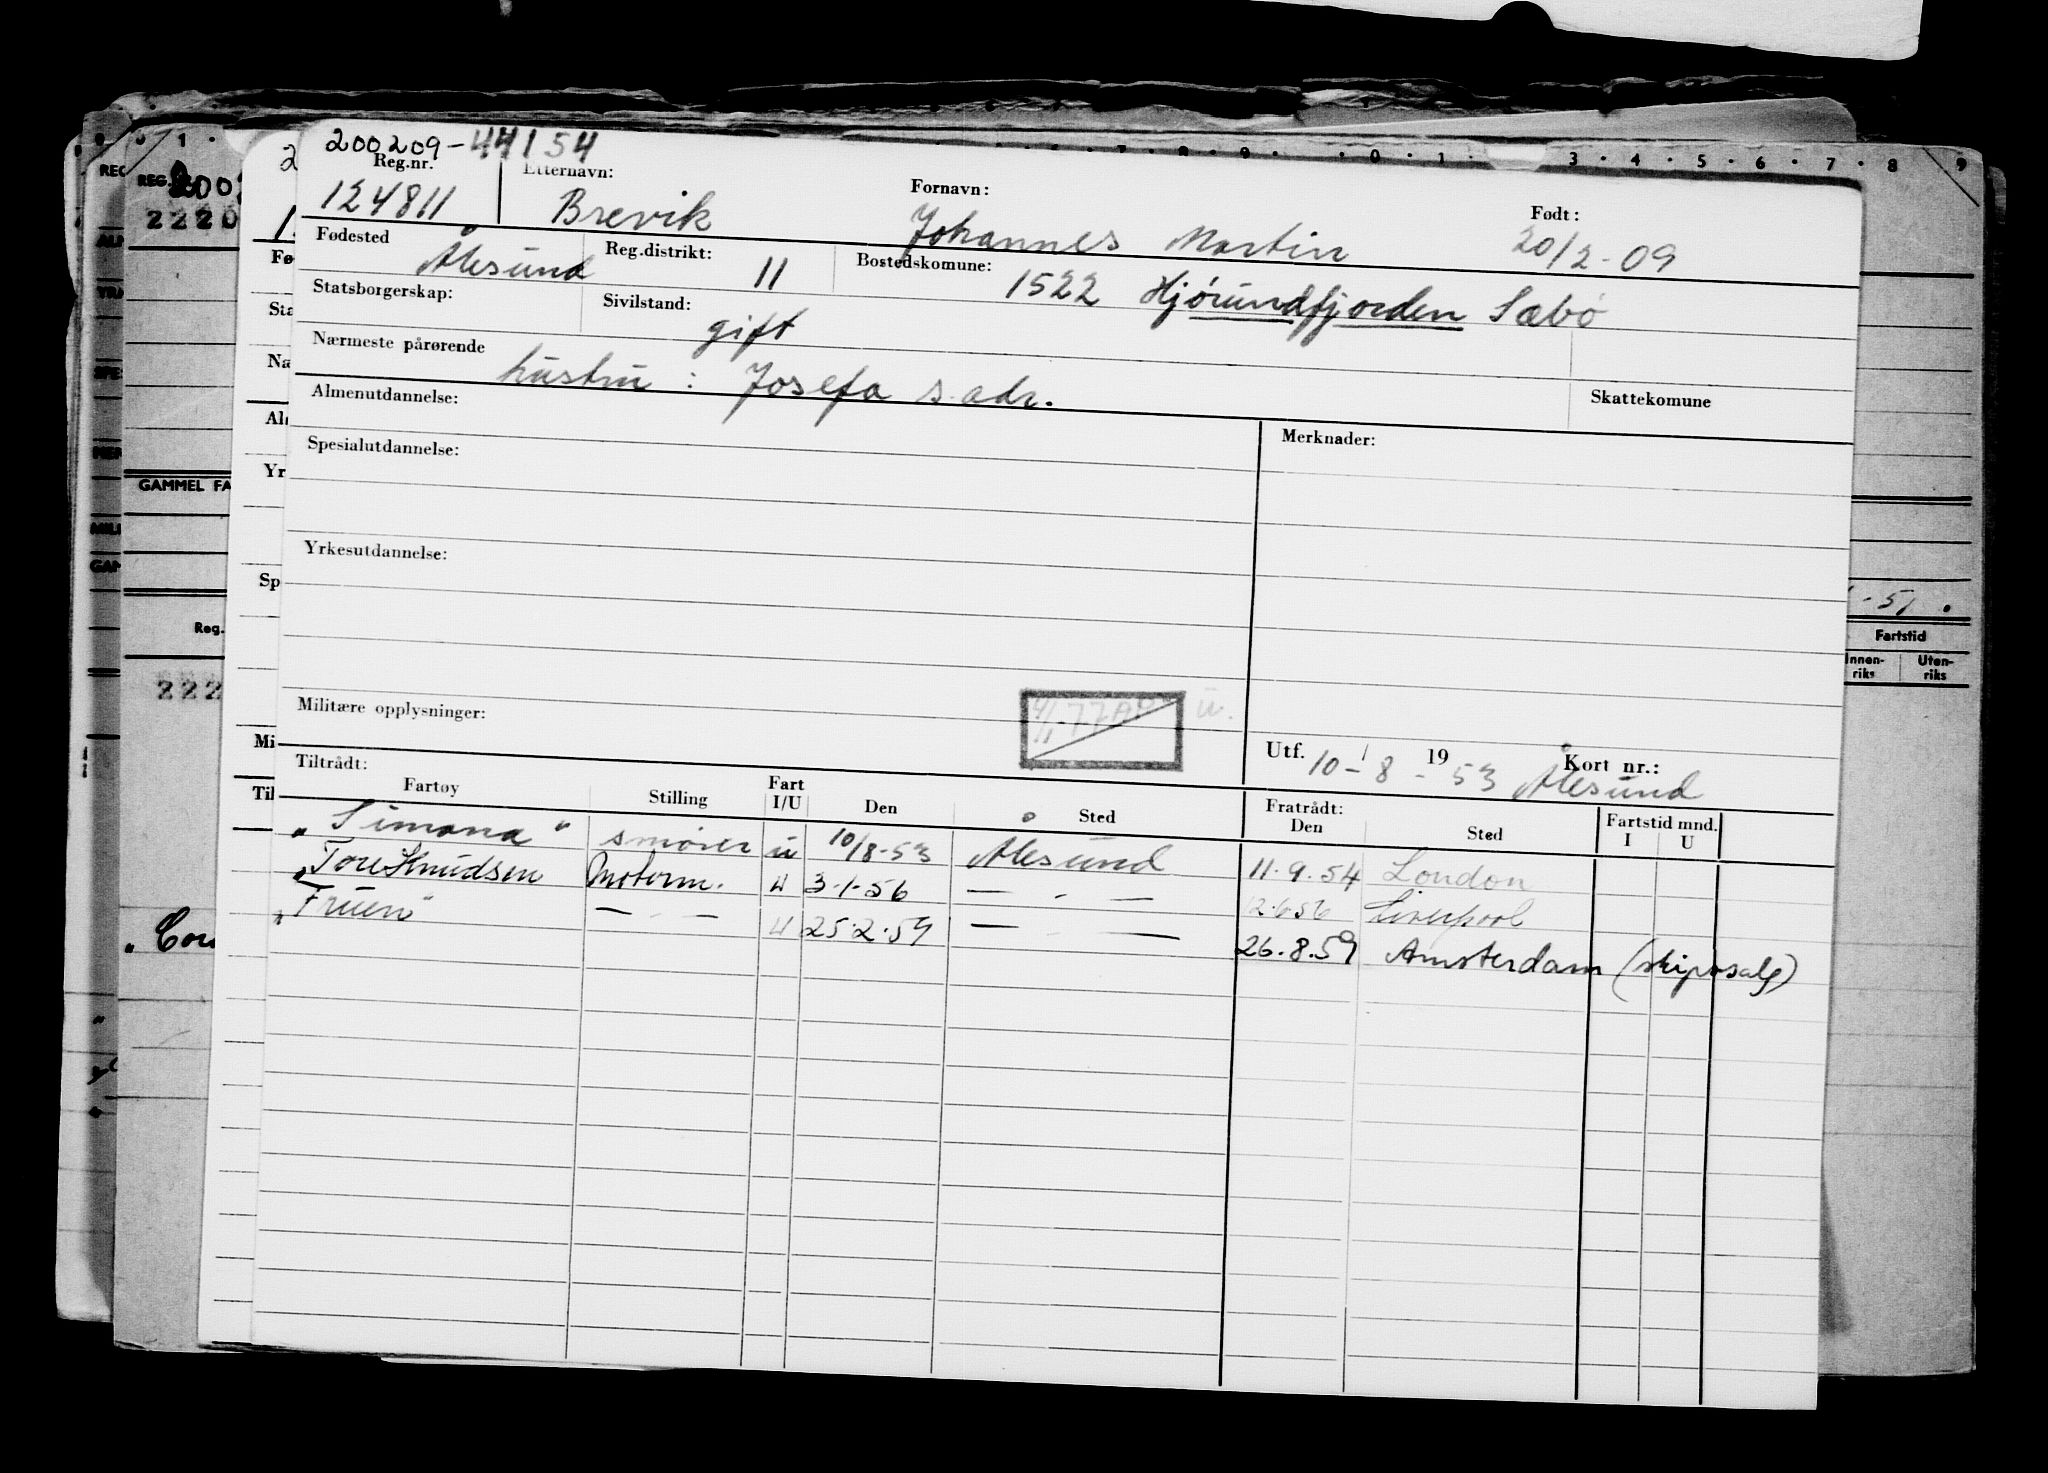 200209-44154
Reg.nr. Etternavn: Fornavn: Født:
124811 Brevik Johannes Martin 20/2-09
Fødested Reg.distrikt: Bostedskomune:
Ålesund 11 1522 Hjørundfjorden Sæbø
Statsborgerskap: Sivilstand:
gift
Nærmeste pårørende
hustru : Josefa s. adr.
Almenutdannelse: Skattekomune
Spesialutdannelse: Merknader:
Yrkesutdannelse:
Militære opplysninger:
Utf. 10-8-1953 Kort nr.:
Ålesund
Tiltrådt: Fratrådt:
Fartøy Stilling Fart I/U Den Sted Den Sted Fartstid mnd. I U
"Simona" smører u 10/8-53 Ålesund 11.9.54 London
"Tore Knudsen Motorm. u 3-1-56 — - — 12.6.56 Liverpool
"Fruen" — - — u 25.2.59 — - — 26.8.59 Amsterdam (skipssalg)
REG.
GAMMEL FA
Reg.
222
-51.
Fartstid
Innen-riks Uten-riks
3 . 4 . 5 . 6 . 7 . 8 9